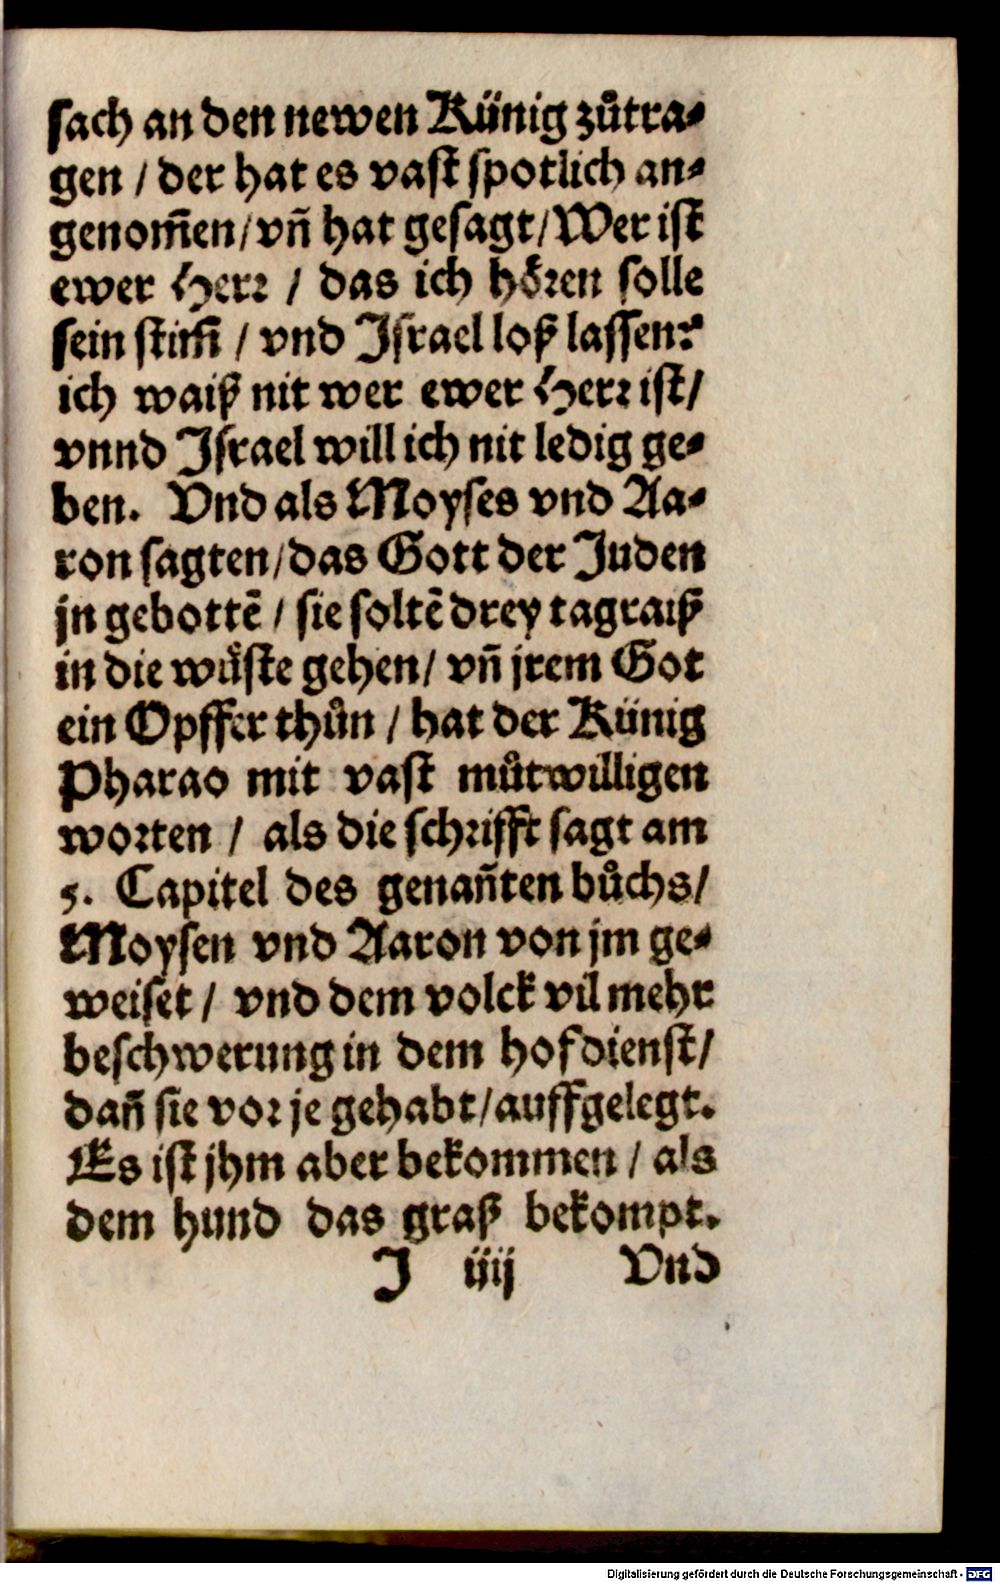 sach an den newen Künig zůtra⸗
gen / der hat es vast spotlich an⸗
genom̃en / vñ hat gesagt / Wer ist
ewer Herr / das ich hoͤren solle
sein stim̃ / vnd Israel loß lassen?
ich waiß nit wer ewer Herr ist /
vnnd Israel will ich nit ledig ge⸗
ben. Vnd als Moyses vnd Aa⸗
ron sagten / das Gott der Juden
jn gebottẽ / sie soltẽ drey tagraiß
in die wuͤste gehen / vñ jrem Got
ein Opffer thůn / hat der Künig
Pharao mit vast můtwilligen
worten / als die schrifft sagt am
5. Capitel des genañten bůchs /
Moysen vnd Aaron von jm ge⸗
weiset / vnd dem volck vil mehr
beschwerung in dem hofdienst /
dañ sie vor je gehabt / auffgelegt.
Es ist jhm aber bekommen / als
dem hund das graß bekompt.
J iiij Vnd
Digitalisierung gefördert durch die Deutsche Forschungsgemeinschaft - DFG